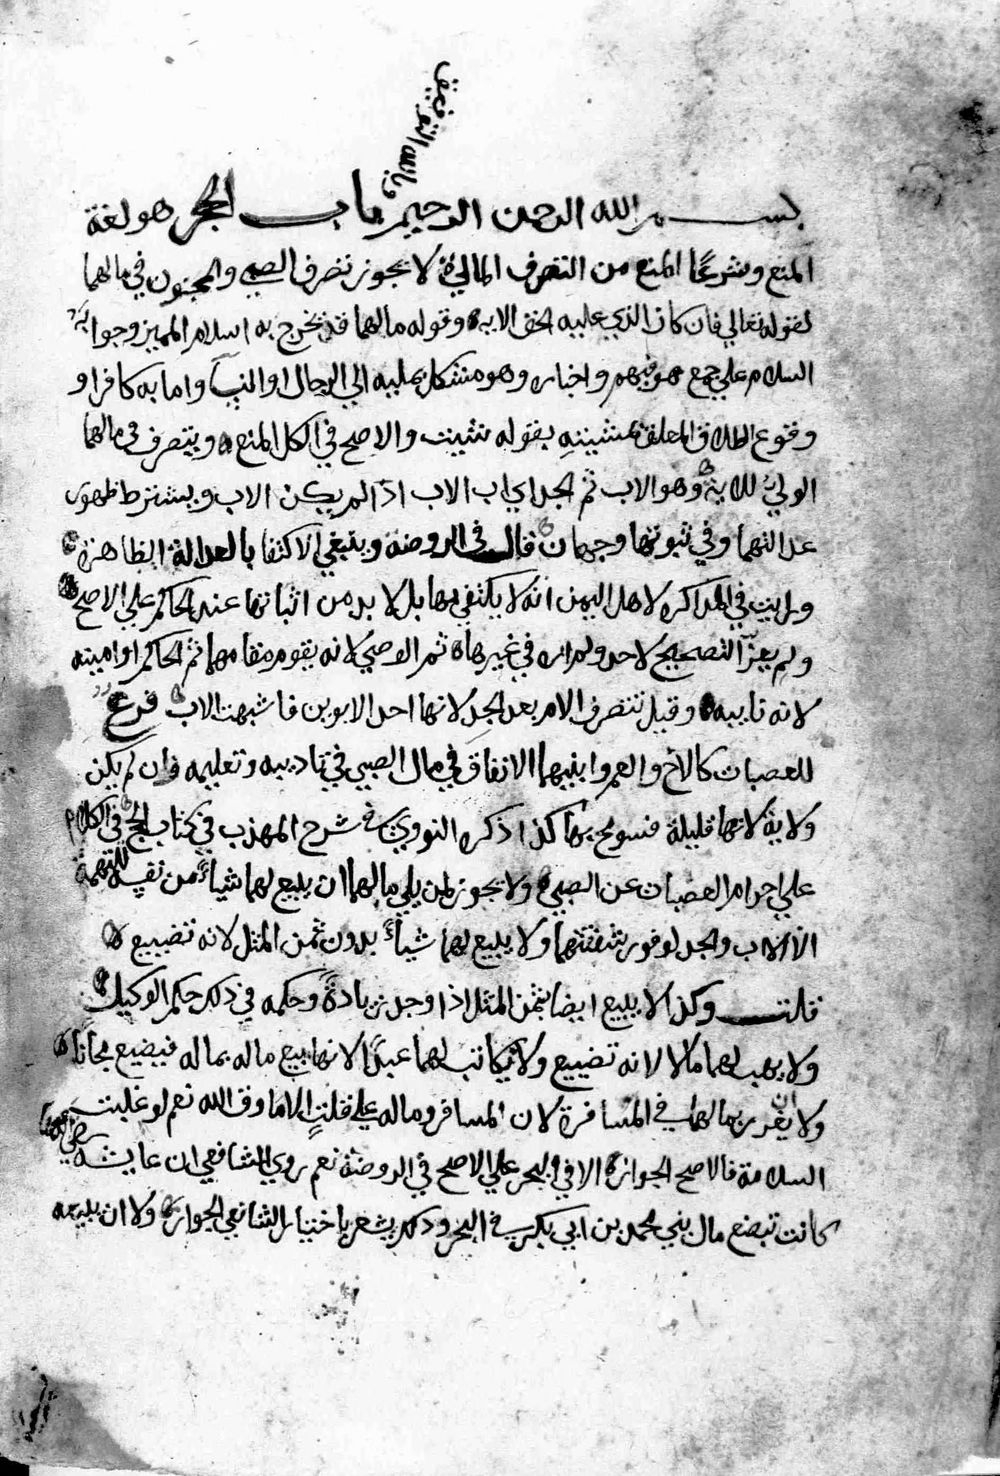 وبالله التوفيق
بسم الله الرحمن الرحيم باب الحجر هو لغة
المنع وشرعًا المنع من التصرف المالي لا يجوز تصرف الصبي والمجنون في مالهما
لقوله تعالى فان كان الذي عليه الحق الايه وقوله مالهما قد يخرج به اسلام المميز وجوابه
السلام علي جمع هو فيهم واخباره وهو مشكل بميله الي الرجال او النسا وامابه كافرا و
وقوع الطلاق المعلق بمشيئته بقوله شئيت والاصح في الكل المنع ويتصرف في مالهما
الولي للاية وهو الاب ثم الجد اي اب الاب اذا لم يكن الاب ويشترط ظهور
عدالتهما وفي ثبوتها وجهان قال في الروضة وينبغي الاكتفا بالعدالة الظاهرة
ورايت في المذاكره لاهل اليمن انه لا يكتفي بها بل لا بد من اثباتها عند الحاكم علي الاصح
ولم يعز التصحيح لاحد ولم اره في غيرها ثم الوصي لانه يقوم مقامهما ثم الحاكم او امينه
لانه نايبه وقيل تتصرف الام بعد الجد لانها احد الابوين فاشبهت الاب فرع
للعصبات كالاخ والعم وابنيهما الانفاق في مال الصبي في تاديبه وتعليمه وان لم يكن
ولاية لانها قليلة فسومح بها كذا ذكره النووي في شرح المهذب في كتاب الحج في الكلام
علي احرام العصبات عن الصبي ولا يجوز لمن يلي مالهما ان يبيع لهما شياً من نفسه للتهمة
الا الاب والجد لوفور شفقتهما ولا يبيع لهما شياً بدون ثمن المثل لانه تضييع
قلت وكذا لا يبيع ايضا بثمن المثل اذا وجد زيادةً وحكمه في ذلك حكم الوكيل
ولا يهب لهما مالا لانه تضييع ولا يكاتب لهما عبدًا لانها بيع ماله بماله فيضيع مجاناً
ولا يغرر بمالهما في المسافرة لان المسافر وماله علي قلتٍ الا ما وقى الله نعم لو غلبت
السلامة فالاصح الجواز الا في البحر علي الاصح في الروضة نعم روي الشافعي ان عايشه رضي الله عنها
كانت تبضع مال بني محمد بن ابي بكر في البحر وذلك يشعر باختيار الشافعي الجواز ولا ان يبيعه